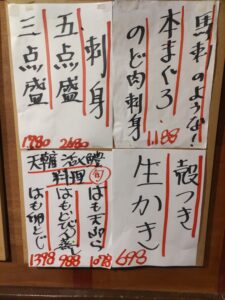 馬刺のような!
本まぐろ
のど肉刺身
1188
刺身
五点盛
2680
三点盛
1780
殻つき
生かき
698
天然活〆鱧
料理 旬
はも天ぷら
1078
はもとびっ子
988
はも卵とじ
1398